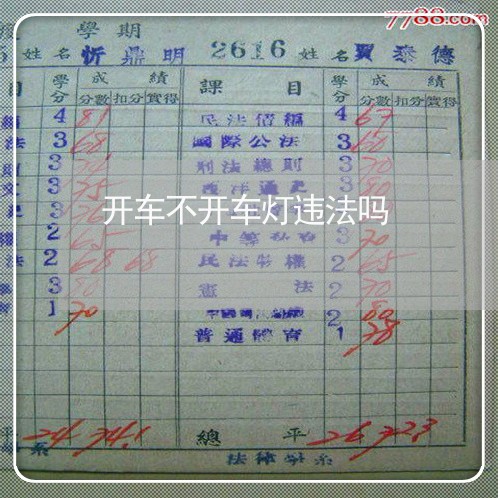 7788.com
學期
姓名 忻鼎明 2616 姓名 賈泰德
目 學分 成績 課目 學分 成績
分數 扣分 實得 分數 扣分 實得
4 81 民法債編 4 67
法 3 68 國際公法 3 60
3 刑法總則 3 70
3 75 西洋通史 3 80
開车不开车灯违法吗
2 65 3 70
法 2 68 68 民法物權 2 65
3 80 憲法 2 70
1 70 2 80
普通體育 1 78
平 24 74.1 總平 26 72.3
系 法律學系